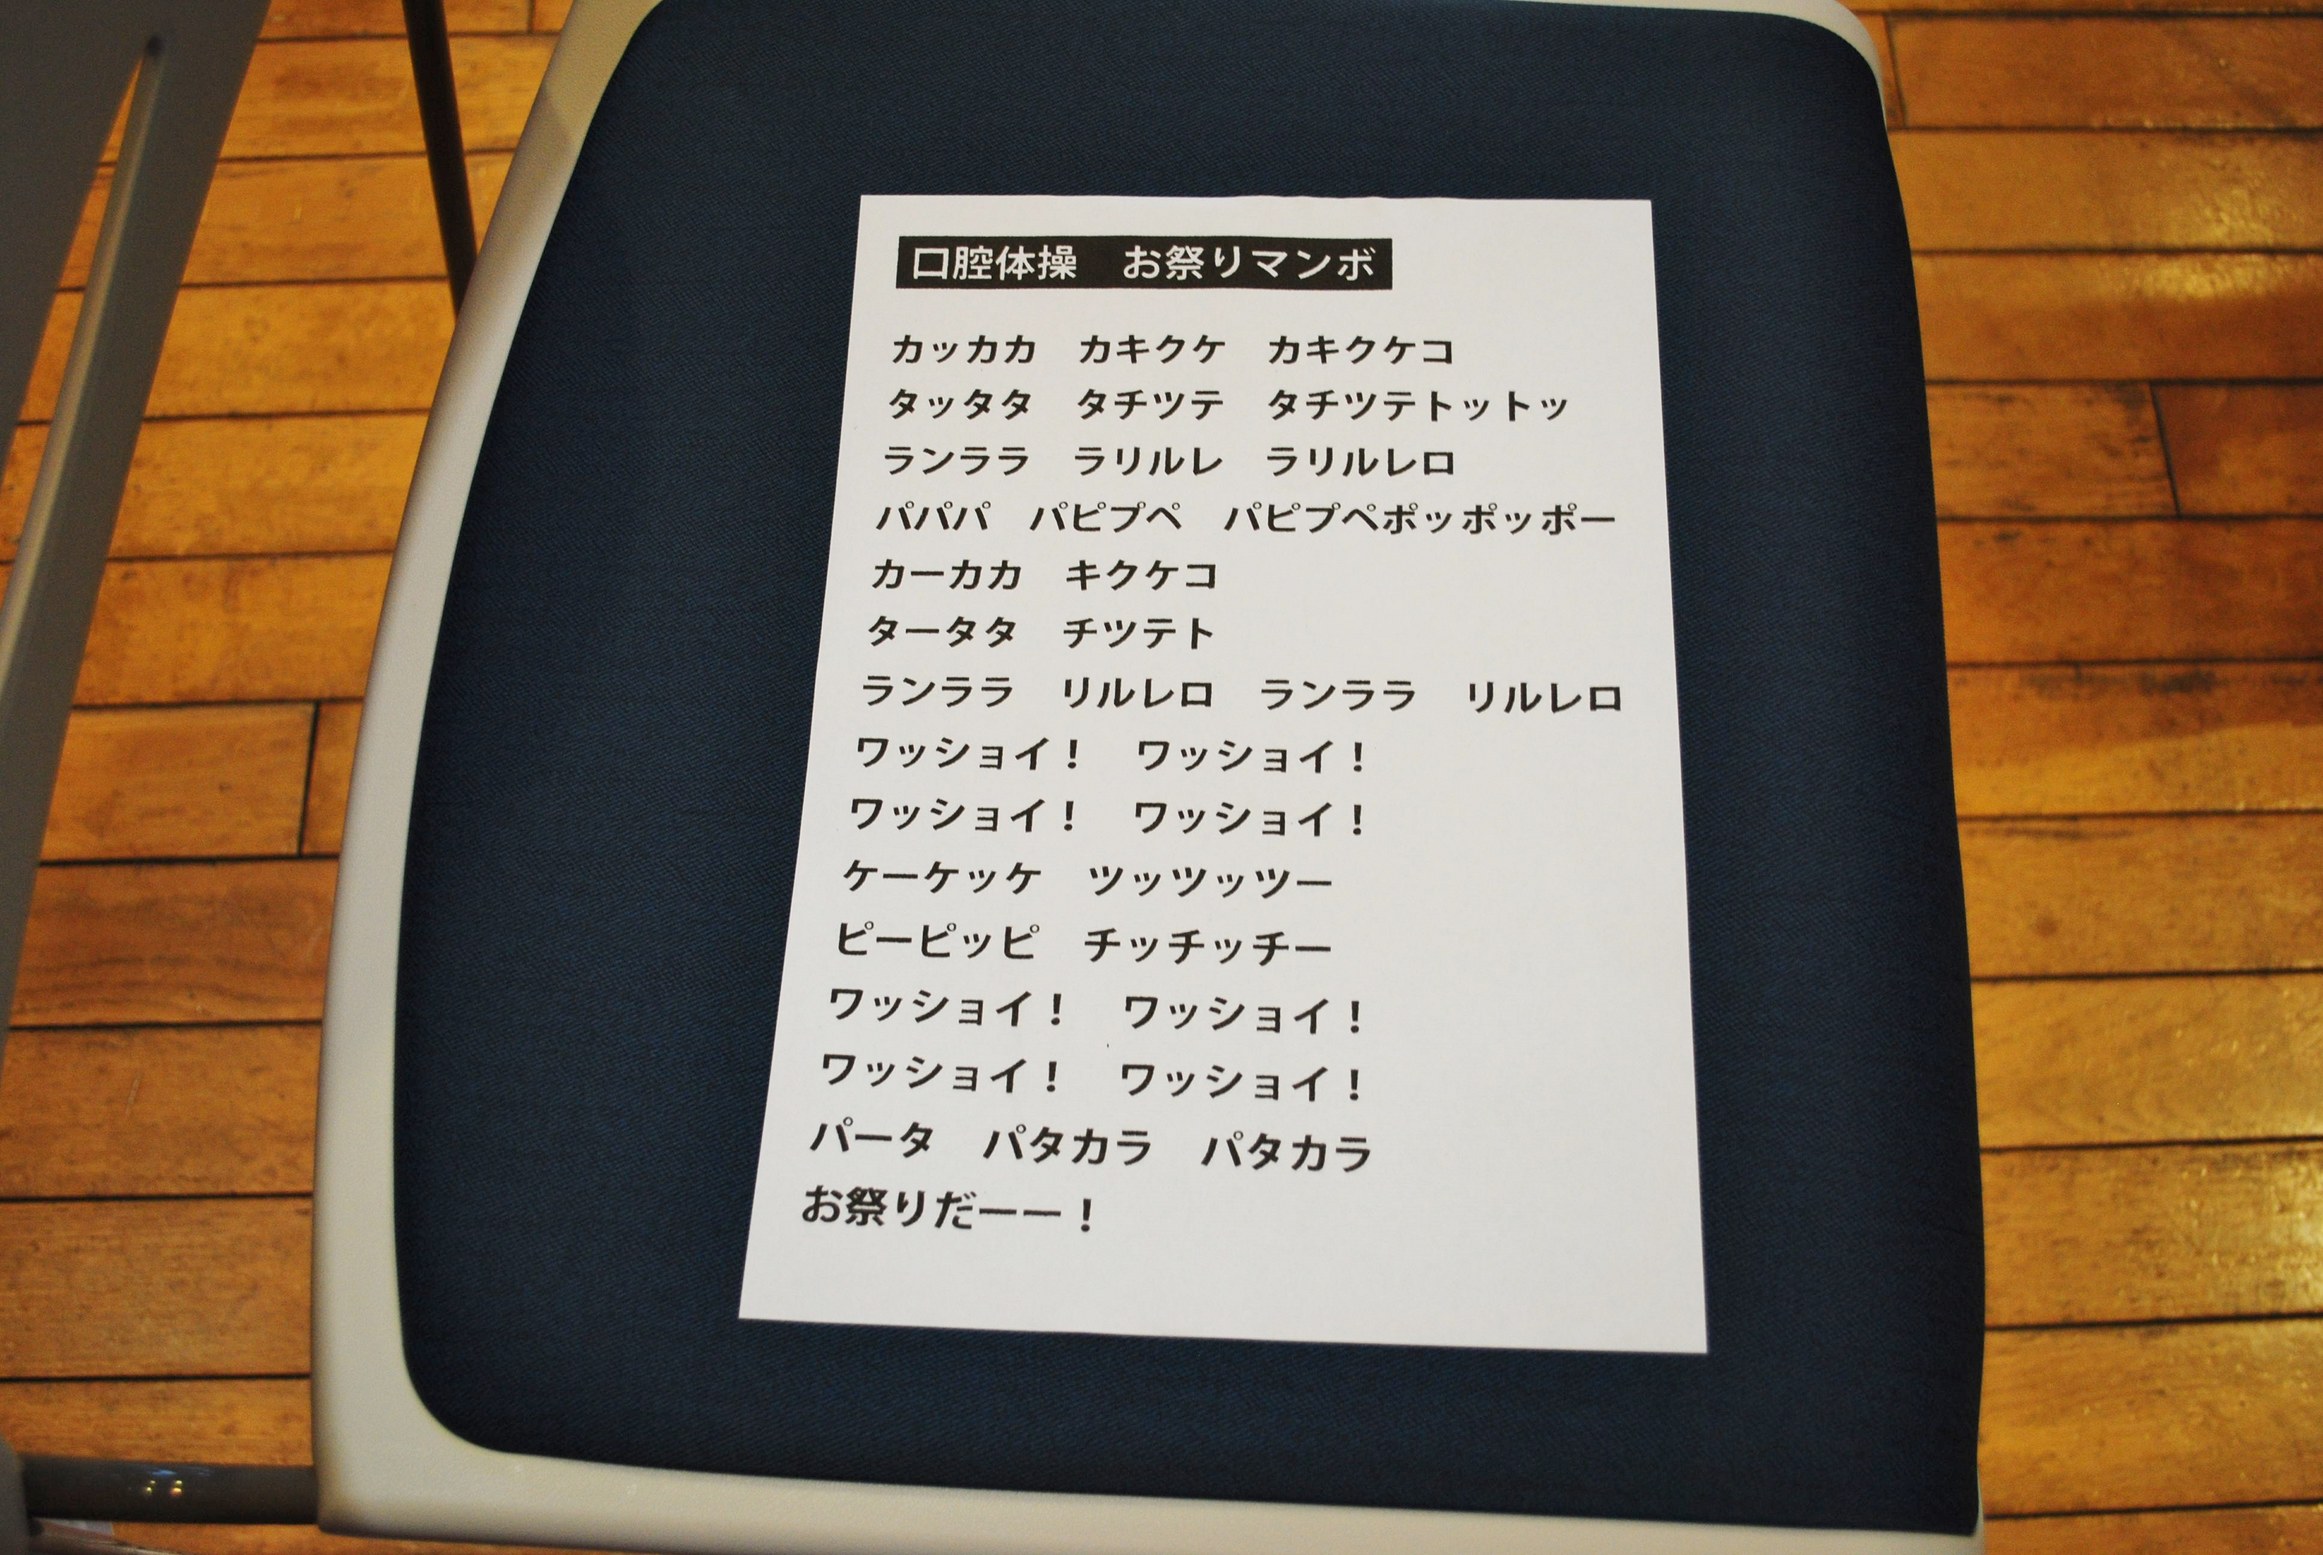 口腔体操　お祭りマンボ
カッカカ　カキクケ　カキクケコ
タッタタ　タチツテ　タチツテトットッ
ランララ　ラリルレ　ラリルレロ
パパパ　パピプペ　パピプペポッポッポー
カーカカ　キクケコ
タータタ　チツテト
ランララ　リルレロ　ランララ　リルレロ
ワッショイ！　ワッショイ！
ワッショイ！　ワッショイ！
ケーケッケ　ツッツッツー
ピーピッピ　チッチッチー
ワッショイ！　ワッショイ！
ワッショイ！　ワッショイ！
パータ　パタカラ　パタカラ
お祭りだーー！